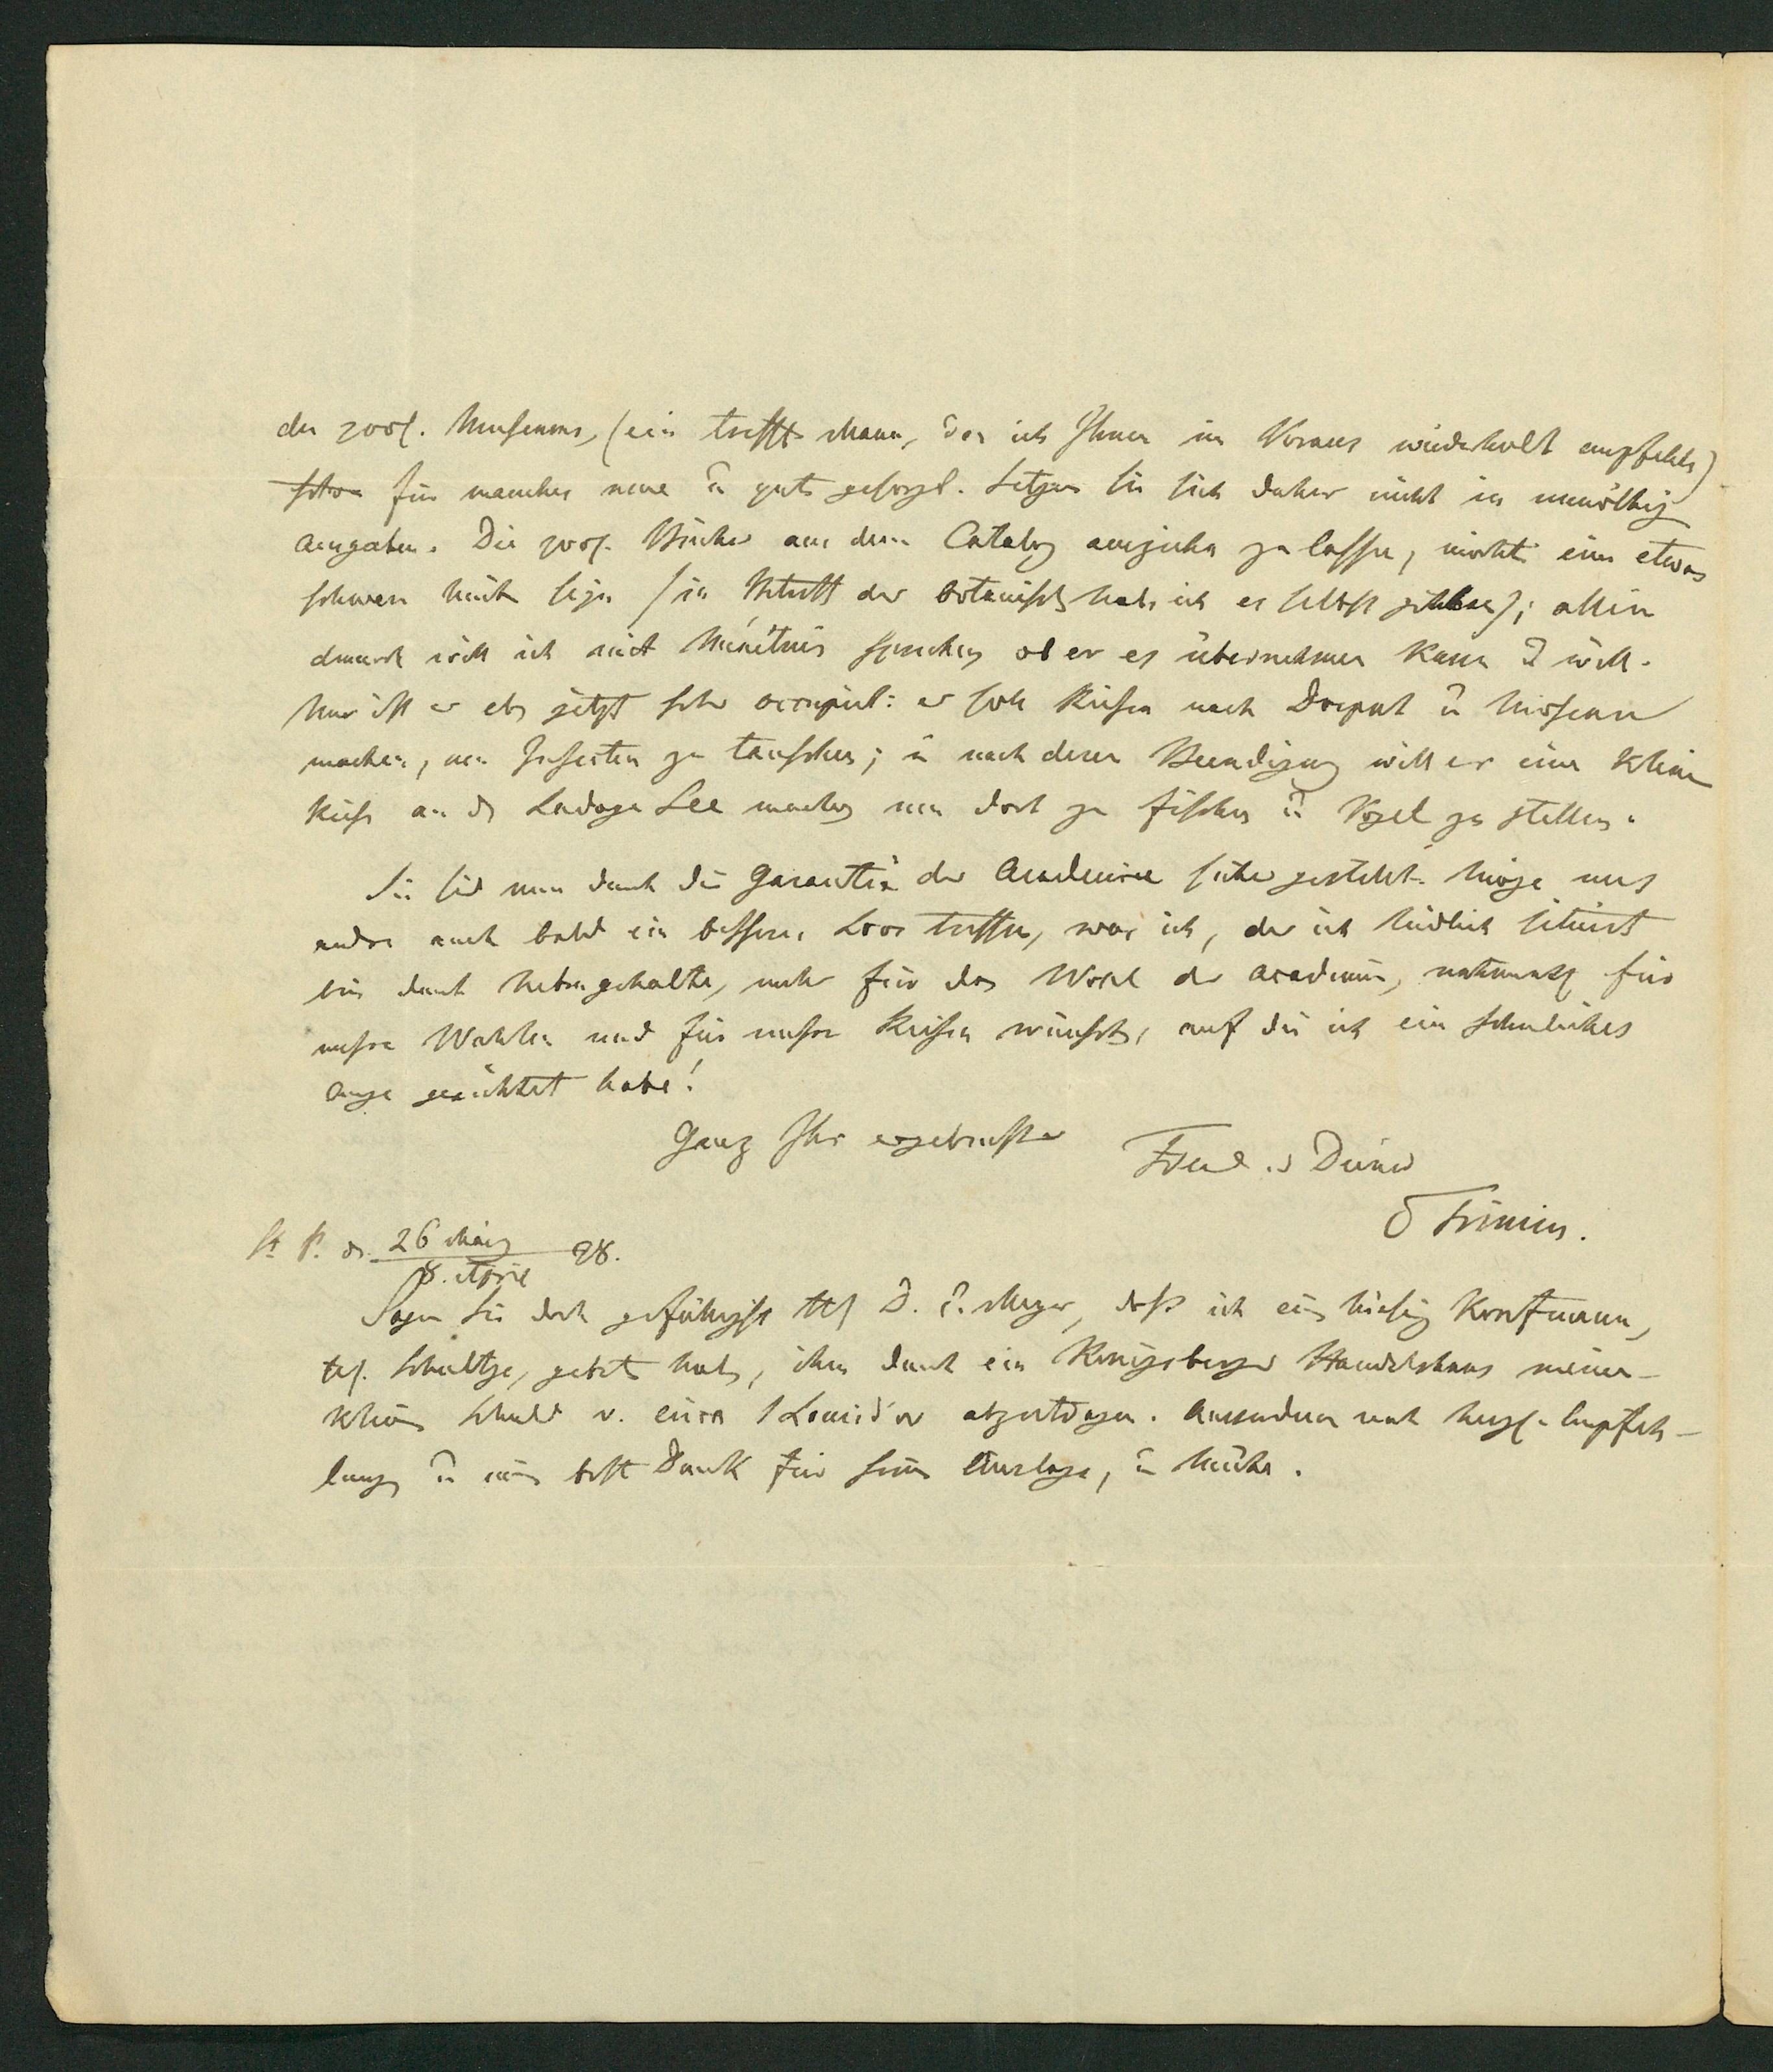 des zool. Museums, (ein treffl. Mann, den ich Ihnen im Voraus wiederholt empfehle)
schon für manches neue u. gute gesorgt. Setzen Sie sich daher nicht in unnöthig
Ausgaben. Die zool. Bücher aus dem Catalog ausziehen zu lassen, möchte eine etwas
schwere Mühe seyn (in Betreff der botanisch. habe ich es selbst gethan); allein
dennoch will ich mit Ménétriés sprechen, ob er es übernehmen kann u. will.
Nur ist er eben jetzt sehr occupirt: er soll Reisen nach Dorpat u.
machen, um Insecten zu tauschen; u. nach deren Beendigung will er eine kleine
Reise an d. Ladoga See machen um dort zu fischen u. Vögel zu stellen.
Sie sind nun durch die Garantie der Academie sicher gestellt. Möge uns
andre auch bald ein besseres Loos treffen, was ich, der ich leidlich situirt
bin durch Nebengehalte, mehr für das Wohl der Academie, für
unsre Wahlen und für unsre Reisen wünsche, auf die ich ein sehnliches
Auge gerichtet habe!
Ganz Ihr ergebenster Freund u. Diener
Trinius.
St. P. d. 26 März / 8. April 28.
Sagen Sie doch gefälligst H. D. E. Meyer, daß ich ein. hiesig. Kaufmann,
H. Schultze, gebet. habe, ihm durch ein Königsberger Handelshaus meine
kleine Schuld v. einem Louisd'or abzutragen. nebst Empfeh-
lungen u. mein. best. Dank für seine Auslage, u. Mühe.